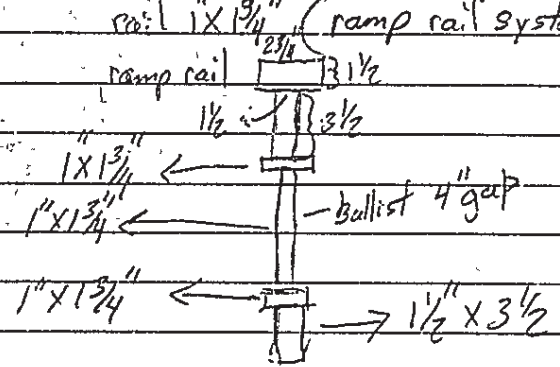 rail 1"X1 3/4" ramp rail syst
2 3/4"
ramp rail 1 1/2
1 1/2 3 1/2
1"X1 3/4"
Ballist 4" gap
1"X1 3/4"
1"X1 3/4"
1 1/2" X 3 1/2